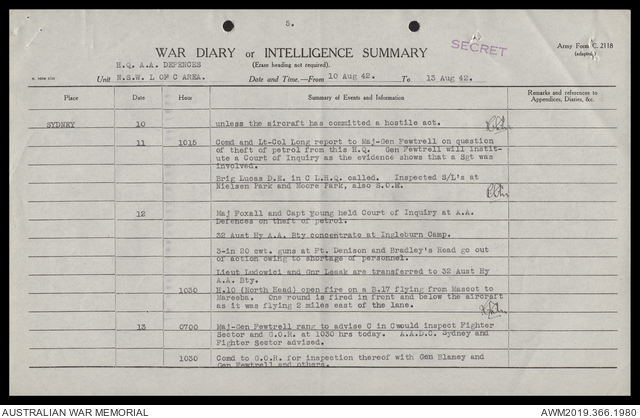 5.
WAR DIARY or INTELLIGENCE SUMMARY
SECRET
Army Form C. 2118
(adapted)
H.Q. A.A. DEFENCES
(Erase heading not required).
Unit N.S.W. L OF C AREA. Date and Time.—From 10 Aug 42. To 13 Aug 42.
Place Date Hour Summary of Events and Information Remarks and references to
Appendices, Diaries, &c.
SYDNEY 10 unless the aircraft has committed a hostile act.
11 1015 Comd and Lt-Col Long report to Maj-Gen Fewtrell on question
of theft of petrol from this H.Q. Gen Fewtrell will instit-
ute a Court of Inquiry as the evidence shows that a Sgt was
involved.
Brig Lucas D.E. in C L.H.Q. called. Inspected S/L's at
Nielsen Park and Moore Park, also S.O.R.
12 Maj Foxall and Capt Young held Court of Inquiry at A.A.
Defences on theft of petrol.
32 Aust Hy A.A. Bty concentrate at Ingleburn Camp.
3-in 20 cwt. guns at Ft. Denison and Bradley's Head go out
of action owing to shortage of personnel.
Lieut Ludowici and Gnr Lesak are transferred to 32 Aust Hy
A.A. Bty.
1030 H.10 (North Head) open fire on a B.17 flying from Mascot to
Mareeba. One round is fired in front and below the aircraft
as it was flying 2 miles east of the lane.
13 0700 Maj-Gen Fewtrell rang to advise C in C would inspect Fighter
Sector and G.O.R. at 1030 hrs today. A.A.D.C. Sydney and
Fighter Sector advised.
1030 Comd to G.O.R. for inspection thereof with Gen Blamey and
Gen Fewtrell and others.
AUSTRALIAN WAR MEMORIAL AWM2019.366.1980